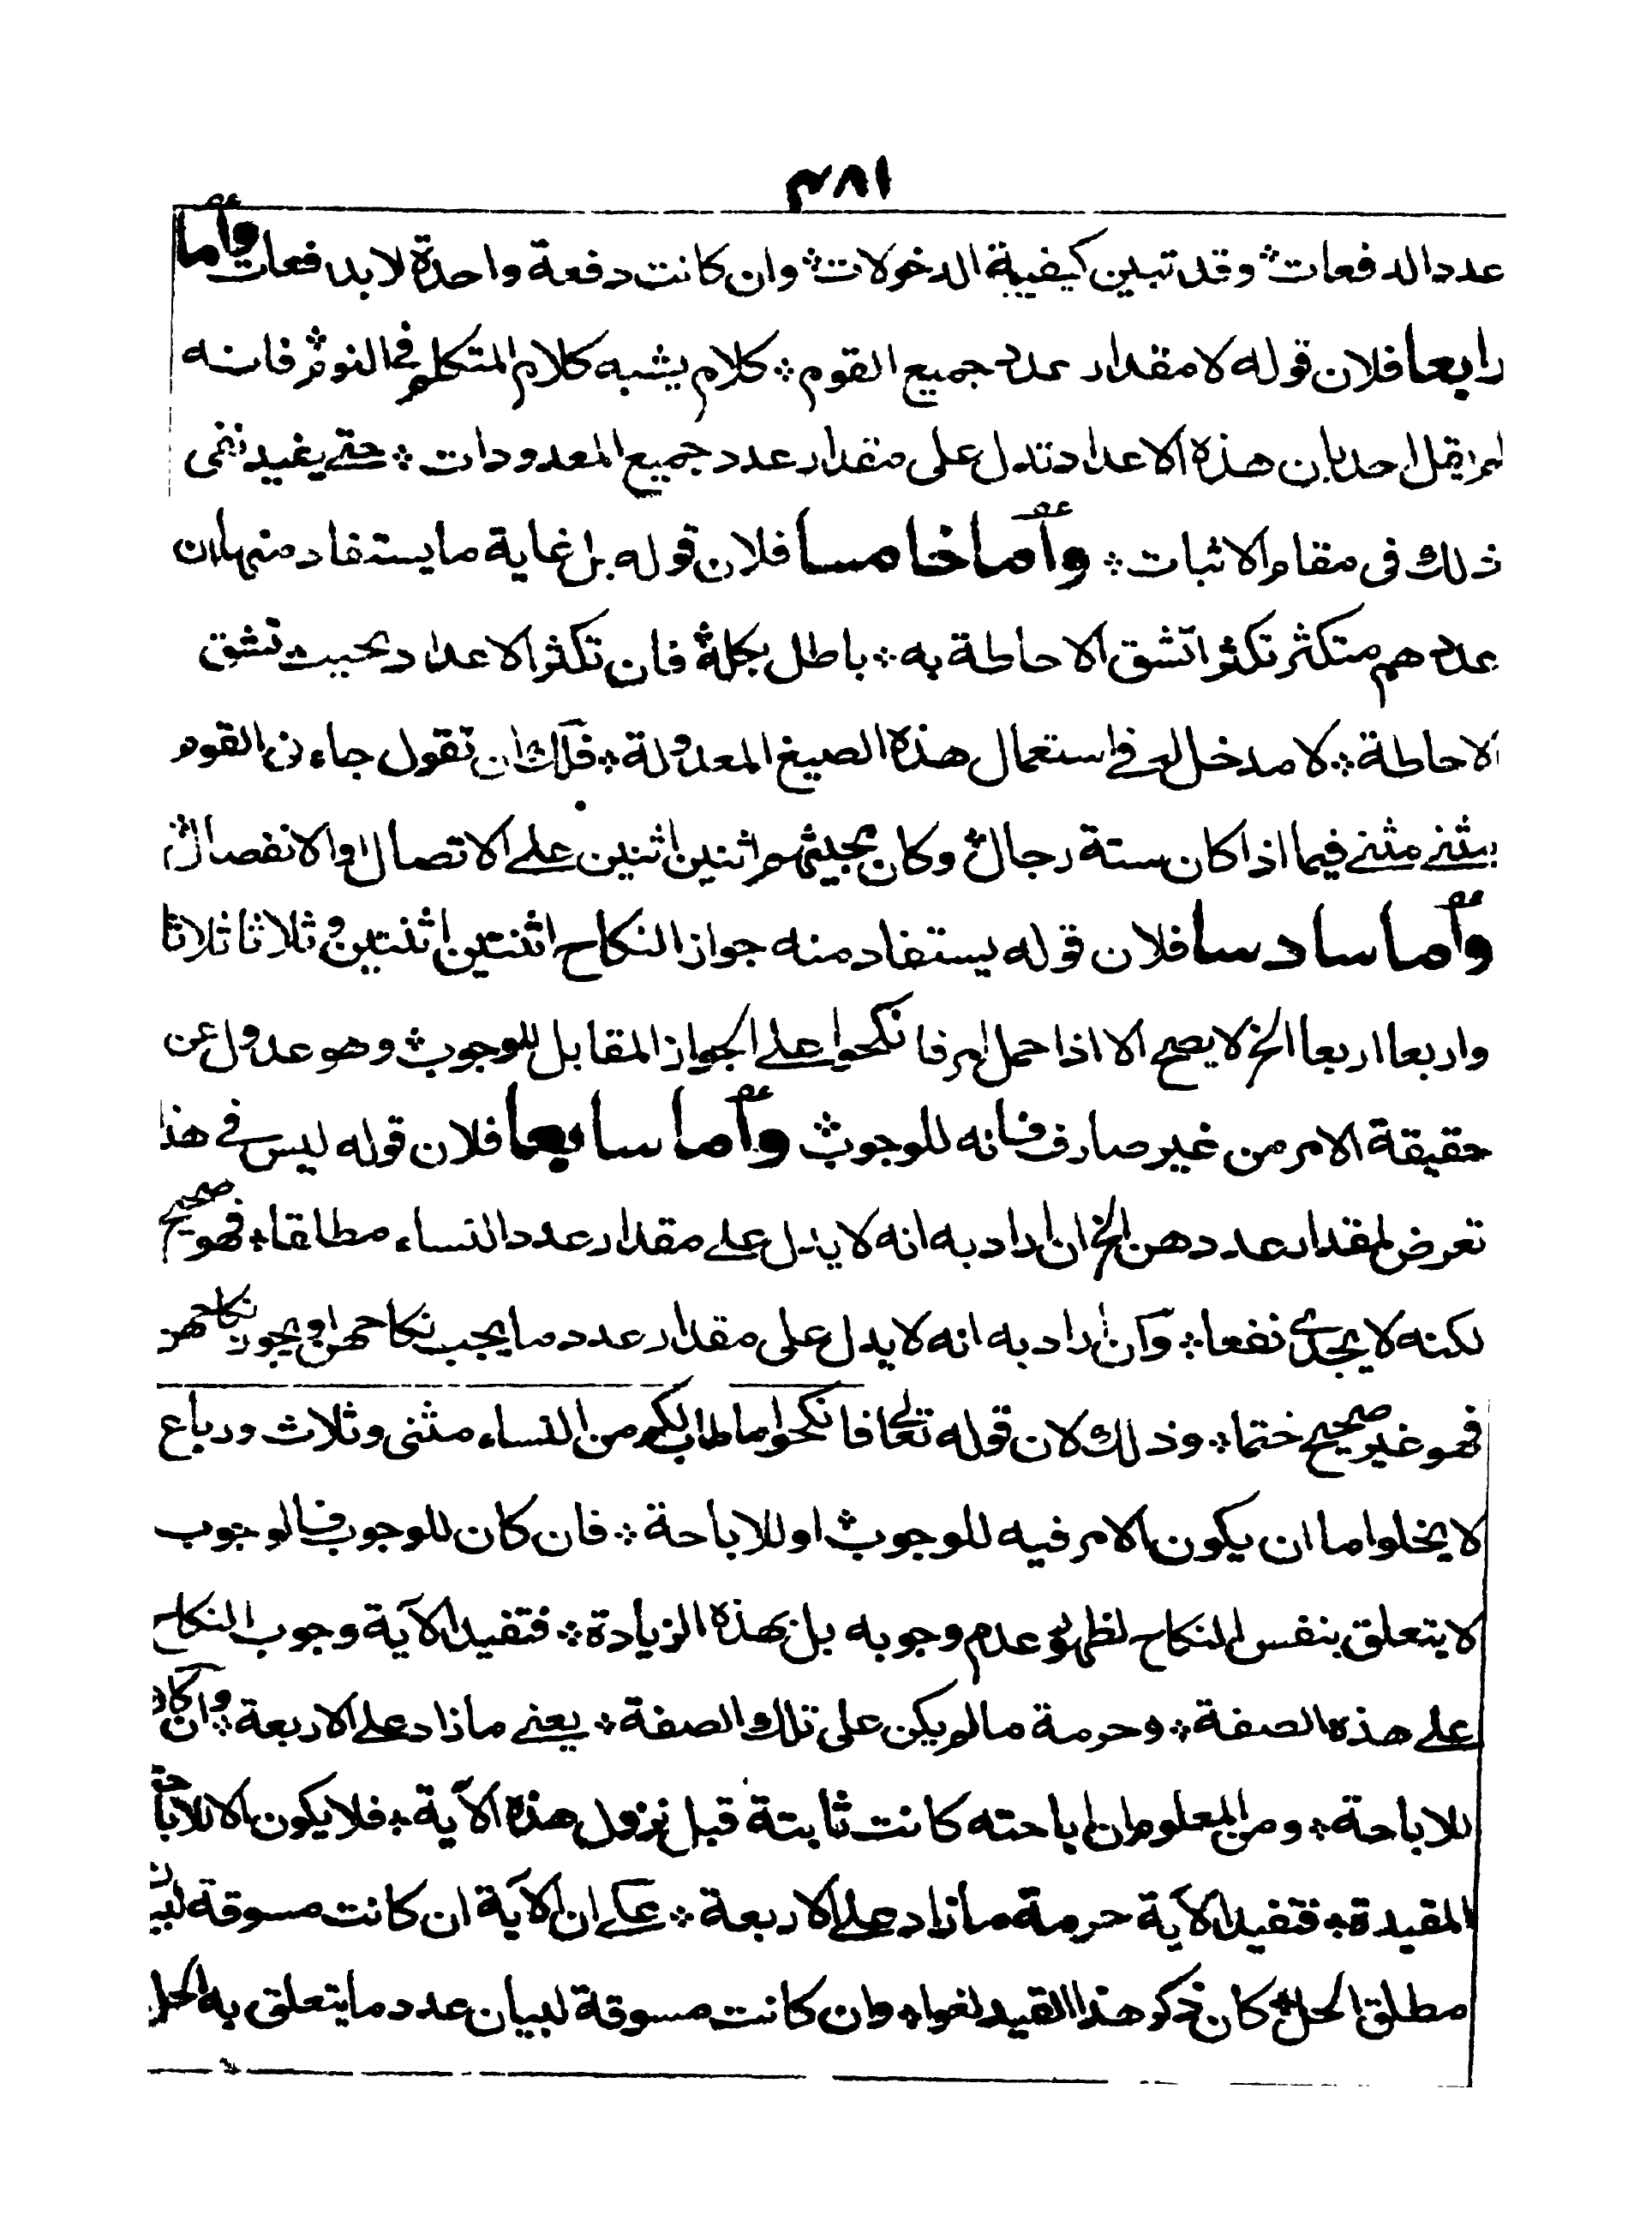 ٣٨١
عدد الدفعات ⁘ وقد تبين كيفية الدخولات ⁘ وان كانت دفعة واحدة لا بدفعات وأما
رابعا فلان قوله لا مقدار عدد جميع القوم ⁘ كلام يشبه كلام المتكلم في النوم ⁘ فانه
لم يقل احد بان هذه الاعداد تدل على مقدار عدد جميع المعدودات ⁘ حتى يفيد نفى
ذلك فى مقام الاثبات ⁘ وأما خامسا فلان قوله بل غاية ما يستفاد منها ان
عددهم متكثر تكثرا تشق الاحاطة به ⁘ باطل بجملة ⁘ فان تكثر الاعداد بحيث تشق
الاحاطة ⁘ لا مدخل له في استعمال هذه الصيغ المعدولة ⁘ فلك ان تقول جاءنى القوم
مثنى مثنى فيما اذا كان ستة رجال ⁘ وكان مجيئهم اثنين اثنين على الاتصال او الانفصال ⁘
وأما سادسا فلان قوله يستفاد منه جواز النكاح اثنتين اثنتين وثلاثا ثلاثا
واربعا اربعا الخ لا يصح الا اذا حمل امر فانكحوا على الجواز المقابل للوجوب ⁘ وهو عدول عن
حقيقة الامر من غير صارف فانه للوجوب ⁘ وأما سابعا فلان قوله ليس في هذا
تعرض لمقدار عددهن الخ ان اراد به انه لا يدل على مقدار عدد النساء مطلقا ⁘ فهو صحيح
لكنه لا يجدي نفعا ⁘ وان اراد به انه لا يدل على مقدار عدد ما يجب نكاحهن او يجوز نكاحهن
فهو غير صحيح ختما ⁘ وذلك لان قوله تعالى فانكحوا ما طاب لكم من النساء مثنى وثلاث ورباع
لا يخلوا ما ان يكون الامر فيه للوجوب ⁘ او للاباحة ⁘ فان كان للوجوب فالوجوب
لا يتعلق بنفس النكاح لظهور عدم وجوبه بل بهذه الزيادة ⁘ فتفيد الآية وجوب النكاح
على هذه الصفة ⁘ وحرمة ما لم يكن على تلك الصفة ⁘ يعنى ما زاد على الاربعة ⁘ وان كان
للاباحة ⁘ ومن المعلوم ان اباحته كانت ثابتة قبل نزول هذه الآية ⁘ فلا يكون الا للاباحة
المقيدة ⁘ فتفيد الآية حرمة ما زاد على الاربعة ⁘ على ان الآية ان كانت مسوقة لبيان
مطلق الحل ⁘ كان ذكر هذا القيد لغوا ⁘ وان كانت مسوقة لبيان عدد ما يتعلق به الحل